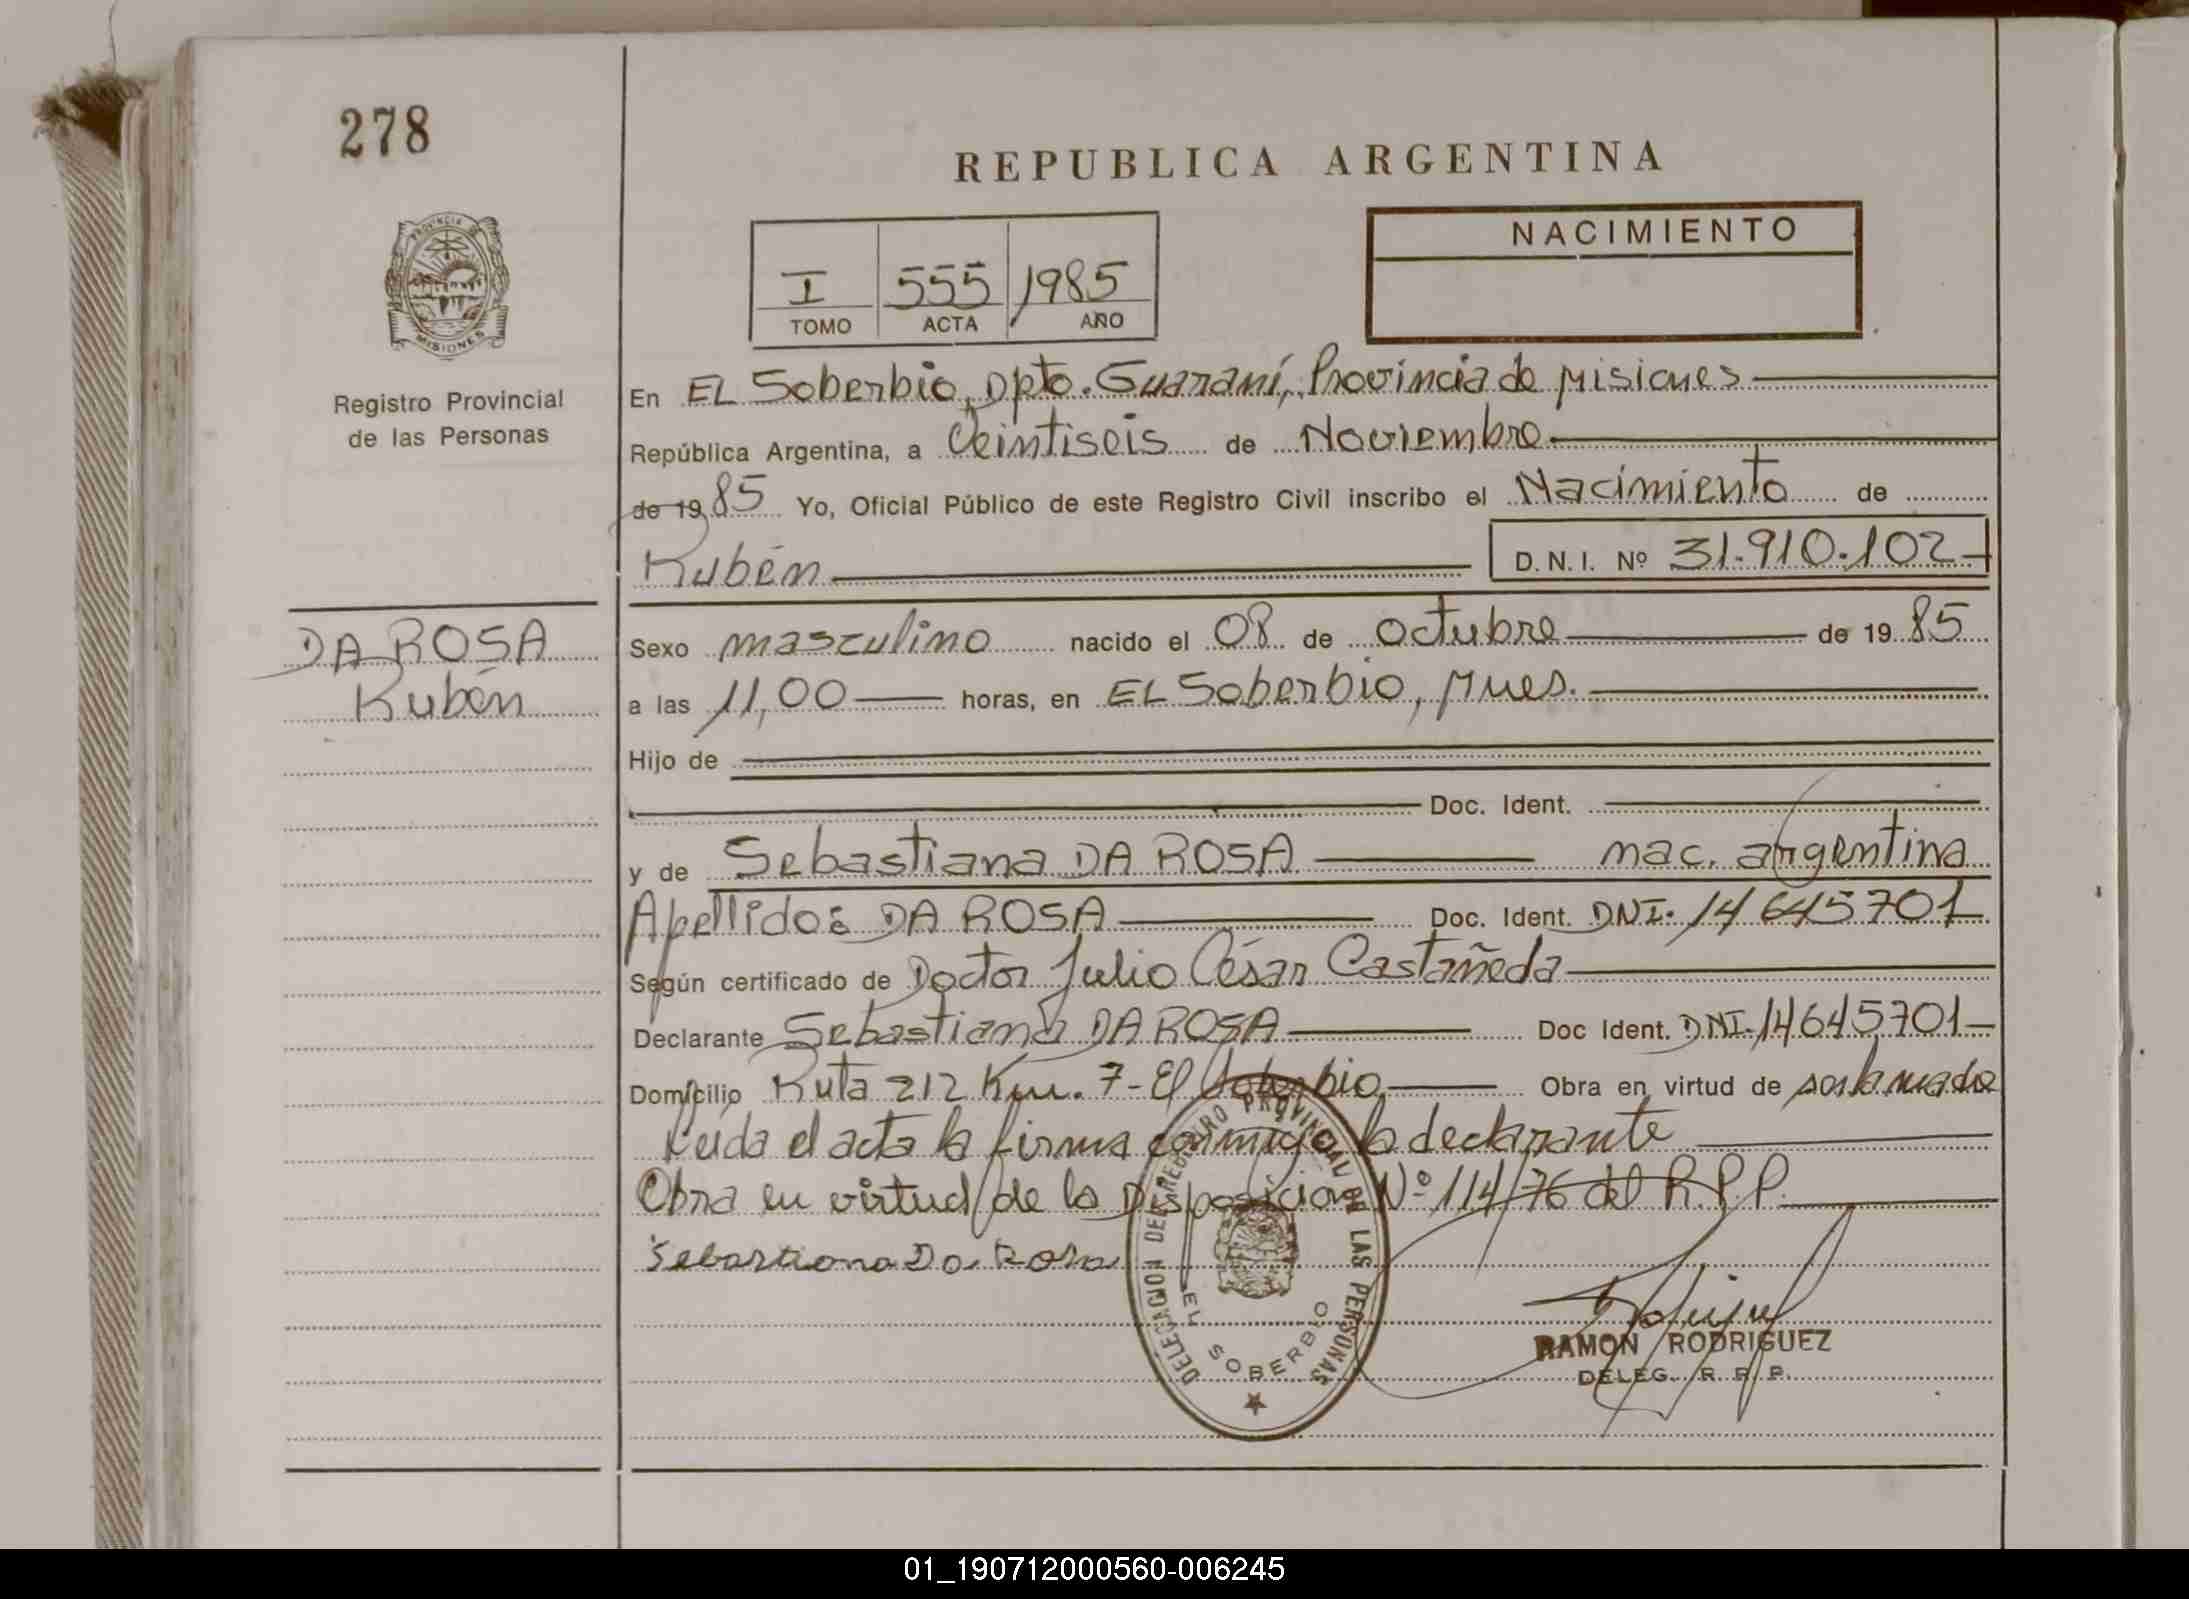 278
REPUBLICA ARGENTINA
PROVINCIA DE MISIONES
Registro Provincial
de las Personas
I 555 1985
TOMO ACTA AÑO
NACIMIENTO
En EL Soberbio, Dpto. Guaraní, Provincia de Misiones
República Argentina, a Veintiseis de Noviembre
de 1985 Yo, Oficial Público de este Registro Civil inscribo el Nacimiento de
Rubén D. N. I. Nº 31.910.102
DA ROSA
Rubén
Sexo masculino nacido el 08 de octubre de 1985
a las 11,00 horas, en EL Soberbio, Mnes.
Hijo de
Doc. Ident.
y de Sebastiana DA ROSA nac. argentina
Apellido: DA ROSA Doc. Ident. DNI. 14645701
Según certificado de Doctor Julio César Castañeda
Declarante Sebastiana DA ROSA Doc Ident. DNI. 14645701
Domicilio Ruta 212 Km. 7 - El Soberbio Obra en virtud de ser la madre
Leida el acta la firma conmigo la declarante
Obra en virtud de la Disposicion Nº 114/76 del R.P.P.
Sebastiana Da Rosa
DELEGACION DEL REGISTRO PROVINCIAL DE LAS PERSONAS
EL SOBERBIO
RAMON RODRIGUEZ
DELEG. R. P. P.
01_190712000560-006245